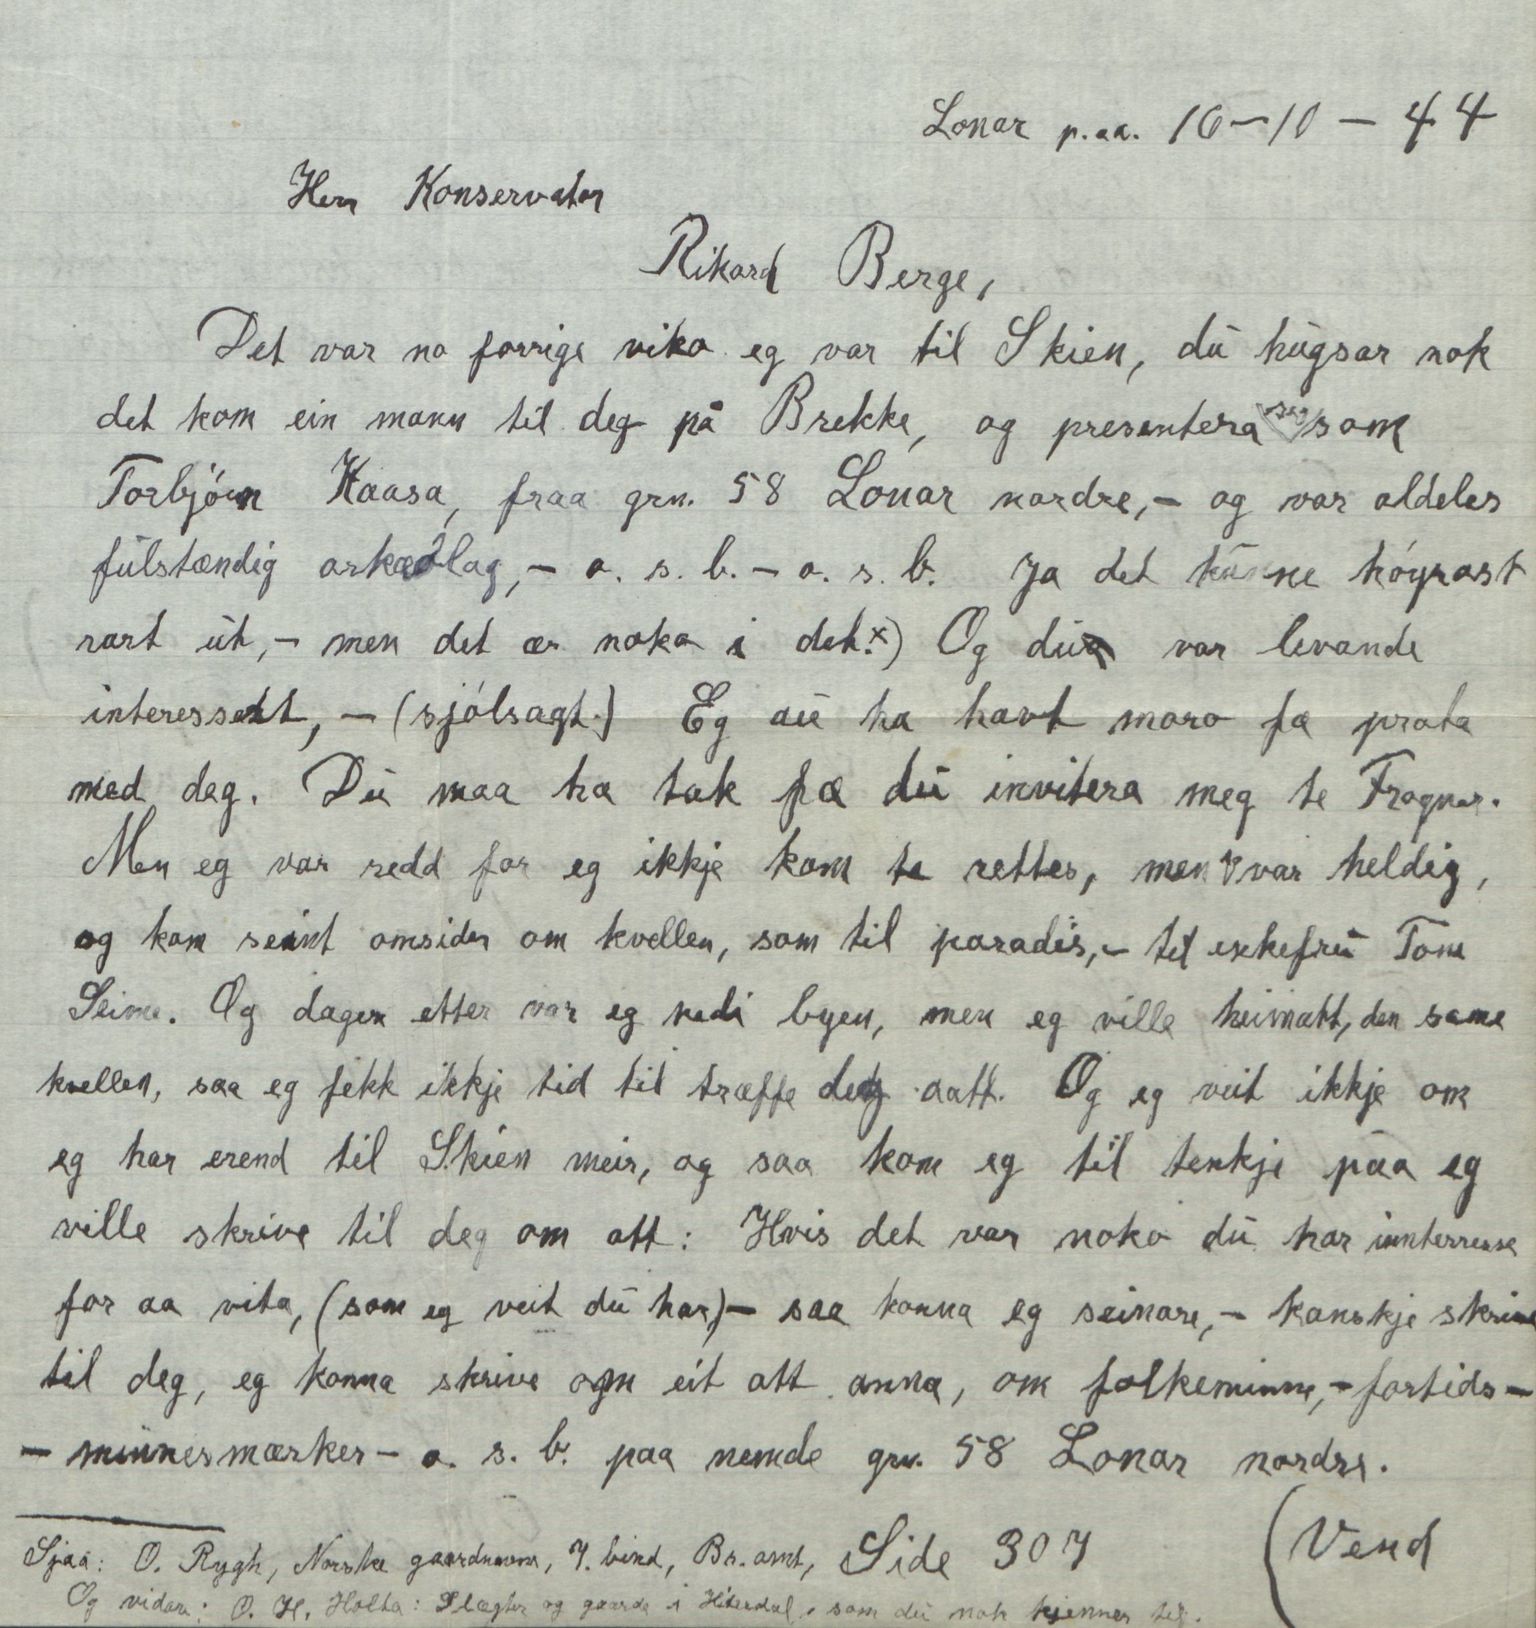 Lonar p.aa. 16-10-44
Herr Konservator
Rikard Berge,
Det var no forrige viko eg var til Skien, dū hūgsar nok
det kom ein mann til deg på Brekke, og presentera seg som
Torbjórn Haasa, fraa grn. 58 Lonar nordre,- og var aldeles
fūlstændig arkæolag,- o. s. b. - o. s. b. Ja det kūnne hóyrast
rart ūt,- men det ær noko i det.x) Og dū var levande
interessert, - (sjólsagt.) Eg aū ha havt moro fa prata
med deg. Dū maa ha tak fæ dū invitera meg te Frogner.
Men eg var redd for eg ikkje kom te rettes, men var heldig,
og kom seint omsider om kvellen, som til paradis,- til enkefrū Tone
Seime. Og dagen etter var eg nedi byen, men eg ville heimatt, den same
kvellen, saa eg fekk ikkje tid til træffe deg aatt. Og eg veit ikkje om
eg har erend til Skien meir, og saa kom eg til tenkje paa eg
ville skrive til deg om att: Hvis det var noko dū har innterresse
for aa vita, (som eg veit dū har,)- saa konna eg seinare,- kanskje skrive
til deg, eg konna skrive om eit att anna, om folkeminne,- fortids-
- minnesmærker- o. s. b. paa nemde grn. 58 Lonar nordre.
Sjaa: O. Rygh, Norske gaardnavne, 7. bind, Br. amt, Side 307
(Vend
Og vidare: O. H. Holta: Slægter og gaarde i Hiterdal, som dū nok kjenner til.